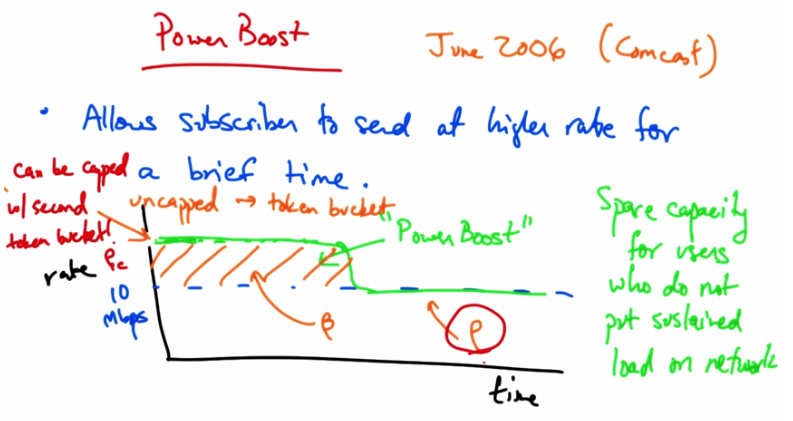 Power Boost
June 2006 (Comcast)
• Allows subscriber to send at higher rate for
a brief time.
can be capped
w/ second
token bucket!
uncapped → token bucket
"Power Boost"
ρc
rate
10
Mbps
β
ρ
time
Spare capacity
for users
who do not
put sustained
load on network